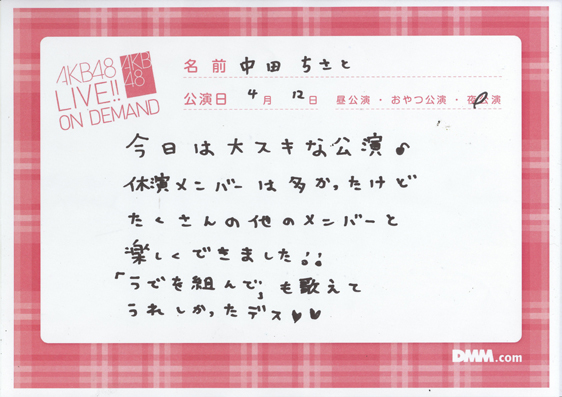 AKB48
LIVE!!
ON DEMAND
AKB
48
名前 中田 ちさと
公演日 4月 12日 昼公演・おやつ公演・夜公演
今日は大スキな公演♪
休演メンバーは多かったけど
たくさんの他のメンバーと
楽しくできました!!
「うでを組んで」も歌えて
うれしかったデス♥♥
DMM.com